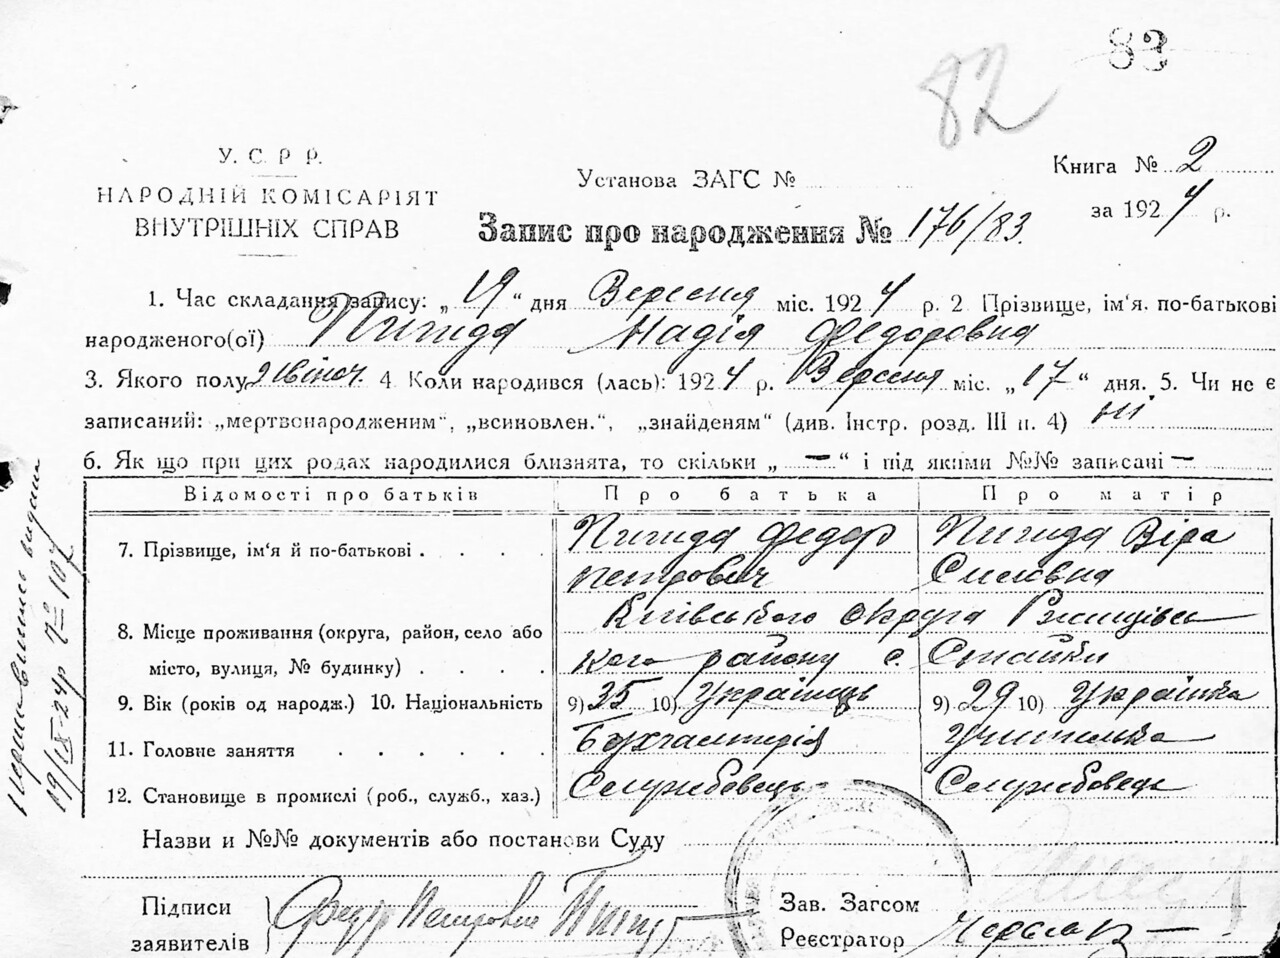 83
82
У. С. Р. Р.
НАРОДНІЙ КОМІСАРІЯТ
ВНУТРІШНІХ СПРАВ
Установа ЗАГС №
Книга № 2
за 1924 р.
Запис про народження № 176/83.
1. Час складання запису: „19“ дня Вересня міс. 1924 р. 2. Прізвище, ім'я. по-батькові
народженого(ої) Пигида Надія Федоровна
3. Якого полу жіноч. 4 Коли народився (лась): 1924 р. Вересня міс. „17“ дня. 5. Чи не є
записаний: „мертвонародженим“, „всиновлен.“, „знайденям“ (див. Інстр. розд. III п. 4) ні
6. Як що при цих родах народилися близнята, то скільки „—“ і під якими №№ записані —
Відомості про батьків Про батька Про матір
7. Прізвище, ім'я й по-батькові . . . . Пигида Федор Пигида Віра
Петрович Силовна
8. Місце проживання (округа, район, село або Київського округа Ржищівсь
місто, вулиця, № будинку) . . . . кого району с. Стайки
9. Вік (років од народж.) 10. Національність 9) 35 10) Українець 9) 29 10) Українка
11. Головне заняття . . . . . Бухгалтерія Учителька
12. Становище в промислі (роб., служб., хаз.) Службовець Службовець
Назви и №№ документів або постанови Суду
Підписи Федір Петрович Зав. Загсом
заявителів Реєстратор
видана
19/IX-24р № 107